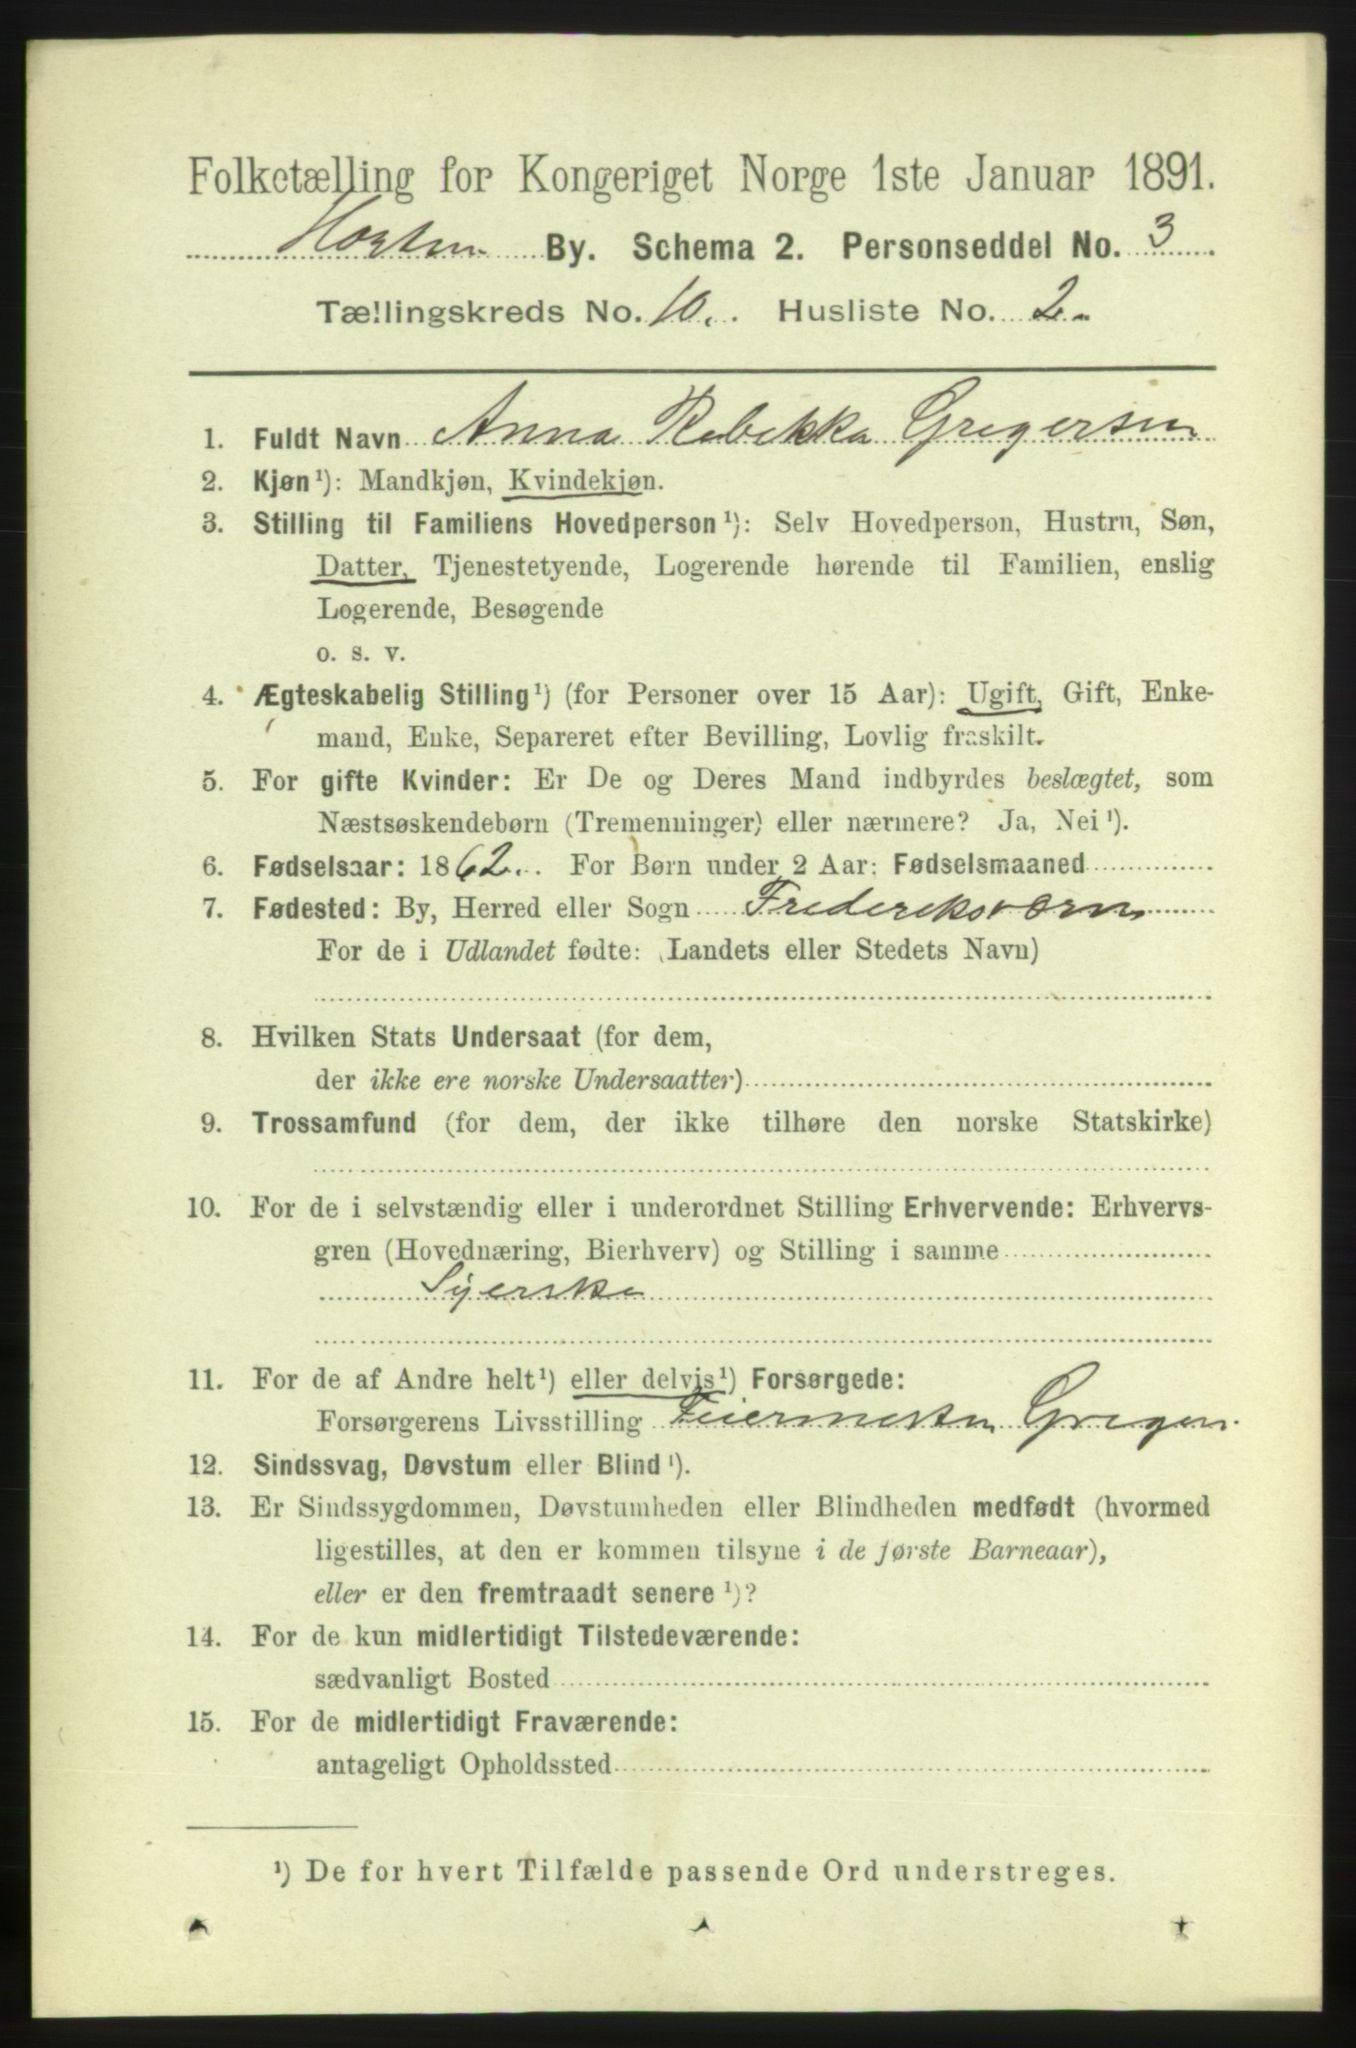 Folketælling for Kongeriget Norge 1ste Januar 1891.
Horten By. Schema 2. Personseddel No. 3.
Tællingskreds No. 10. Husliste No. 2.
1. Fuldt Navn Anna Rebekka Gregersen
2. Kjøn¹): Mandkjøn, Kvindekjøn.
3. Stilling til Familiens Hovedperson¹): Selv Hovedperson, Hustru, Søn,
Datter, Tjenestetyende, Logerende hørende til Familien, enslig
Logerende, Besøgende
o. s. v.
4. Ægteskabelig Stilling¹) (for Personer over 15 Aar): Ugift, Gift, Enke-
mand, Enke, Separeret efter Bevilling, Lovlig fraskilt.
5. For gifte Kvinder: Er De og Deres Mand indbyrdes beslægtet, som
Næstsøskendebørn (Tremenninger) eller nærmere? Ja, Nei¹).
6. Fødselsaar: 1862. For Børn under 2 Aar: Fødselsmaaned
7. Fødested: By, Herred eller Sogn Frederiksværn
For de i Udlandet fødte: (Landets eller Stedets Navn)
8. Hvilken Stats Undersaat (for dem,
der ikke ere norske Undersaatter)
9. Trossamfund (for dem, der ikke tilhøre den norske Statskirke)
10. For de i selvstændig eller i underordnet Stilling Erhvervende: Erhvervs-
gren (Hovednæring, Bierhverv) og Stilling i samme
Syerske
11. For de af Andre helt¹) eller delvis¹) Forsørgede:
Forsørgerens Livsstilling Feiermester Gregers.
12. Sindssvag, Døvstum eller Blind¹).
13. Er Sindssygdommen, Døvstumheden eller Blindheden medfødt (hvormed
ligestilles, at den er kommen tilsyne i de første Barneaar),
eller er den fremtraadt senere¹)?
14. For de kun midlertidigt Tilstedeværende:
sædvanligt Bosted
15. For de midlertidigt Fraværende:
antageligt Opholdssted
¹) De for hvert Tilfælde passende Ord understreges.